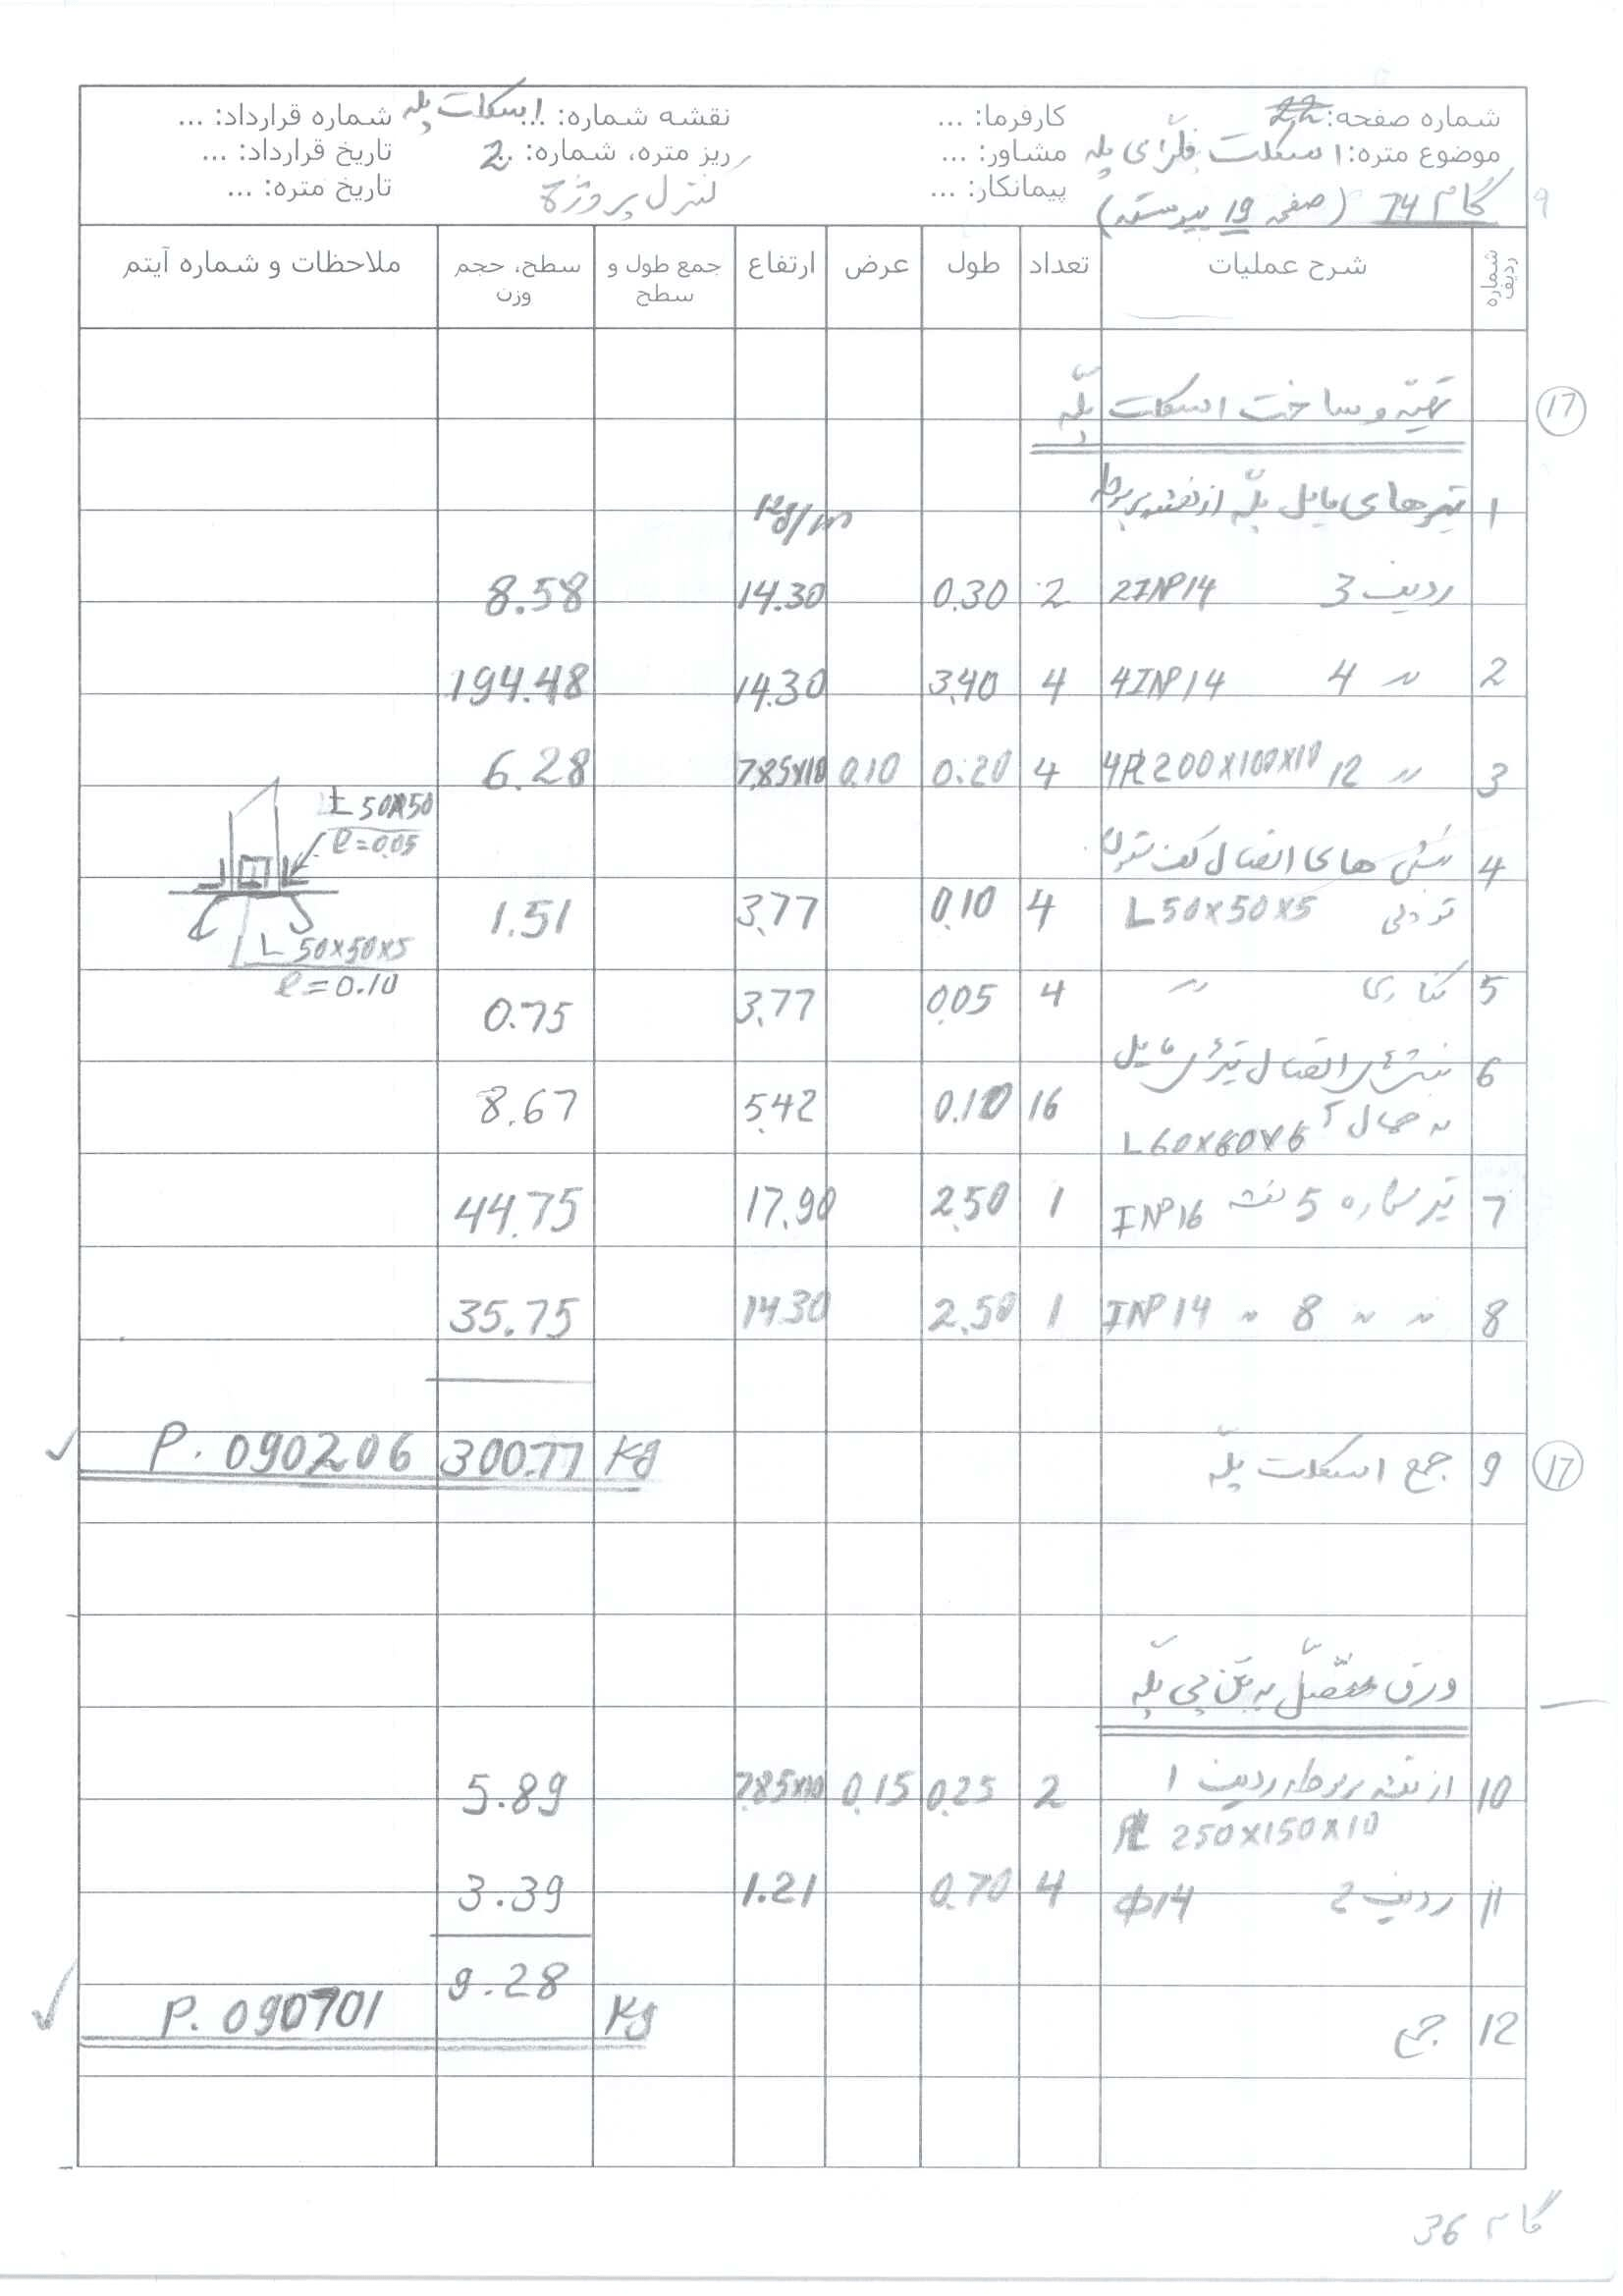 شماره صفحه: 22
کارفرما: ...
نقشه شماره: ... اسکلت پله
شماره قرارداد: ...
موضوع متره: اسکلت فلزی پله
مشاور: ...
ریز متره، شماره: 2
تاریخ قرارداد: ...
گام 74 (صفحه 19 پیوسته)
پیمانکار: ...
کنترل پروژه
تاریخ متره: ...
شماره ردیف شرح عملیات تعداد طول عرض ارتفاع جمع طول و سطح سطح، حجم وزن ملاحظات و شماره آیتم
17 تهیه و ساخت اسکلت پله
1 تیرهای مایل پله از نقشه مربوطه
kg/m
ردیف 3 2INP14 2 0.30 14.30 8.58
2 〃 4 4INP14 4 3.40 14.30 194.48
3 〃 12 4PL200x100x10 4 0.20 0.10 7.85x10 6.28
L 50x50
l=0.05
4 نبشی های اتصال کف ستون
تودلی L50x50x5 4 0.10 3.77 1.51
L 50x50x5
l=0.10
5 کناری 〃 4 0.05 3.77 0.75
6 اتصال مایل
به حمال L60x60x6 16 0.10 5.42 8.67
7 تیر شماره 5 نقشه INP16 1 2.50 17.90 44.75
8 〃 〃 8 〃 INP14 1 2.50 14.30 35.75
17 9 جمع اسکلت پله kg 300.77 P. 090206
ورق متصل به بتن پی پله
10 از نقشه مربوطه ردیف 1 2 0.25 0.15 7.85x10 5.89
PL 250x150x10
11 ردیف 2 Φ14 4 0.70 1.21 3.39
9.28
12 جمع kg P. 090701
گام 36